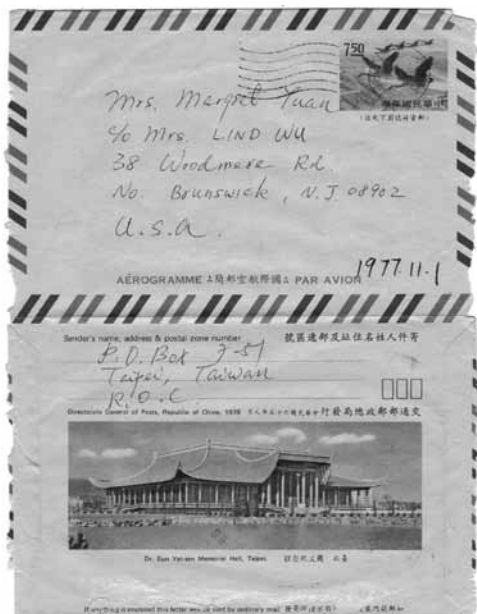 7.50
中華民國郵票
Mrs. Margret Yuan
c/o Mrs. LIND WU
38 Woodmere Rd.
No. Brunswick, N.J. 08902
U.S.A.
AÉROGRAMME 國際航空郵簡 PAR AVION
1977.11.1
Sender's name, address & postal zone number 寄件人姓名住址及郵遞區號
P.O. Box 7-51
Taipei, Taiwan
R.O.C.
Directorate General of Posts, Republic of China, 交通部郵政總局發行
Dr. Sun Yat-sen Memorial Hall, Taipei. 臺北 國父紀念館
If anything is enclosed this letter will be sent by ordinary mail